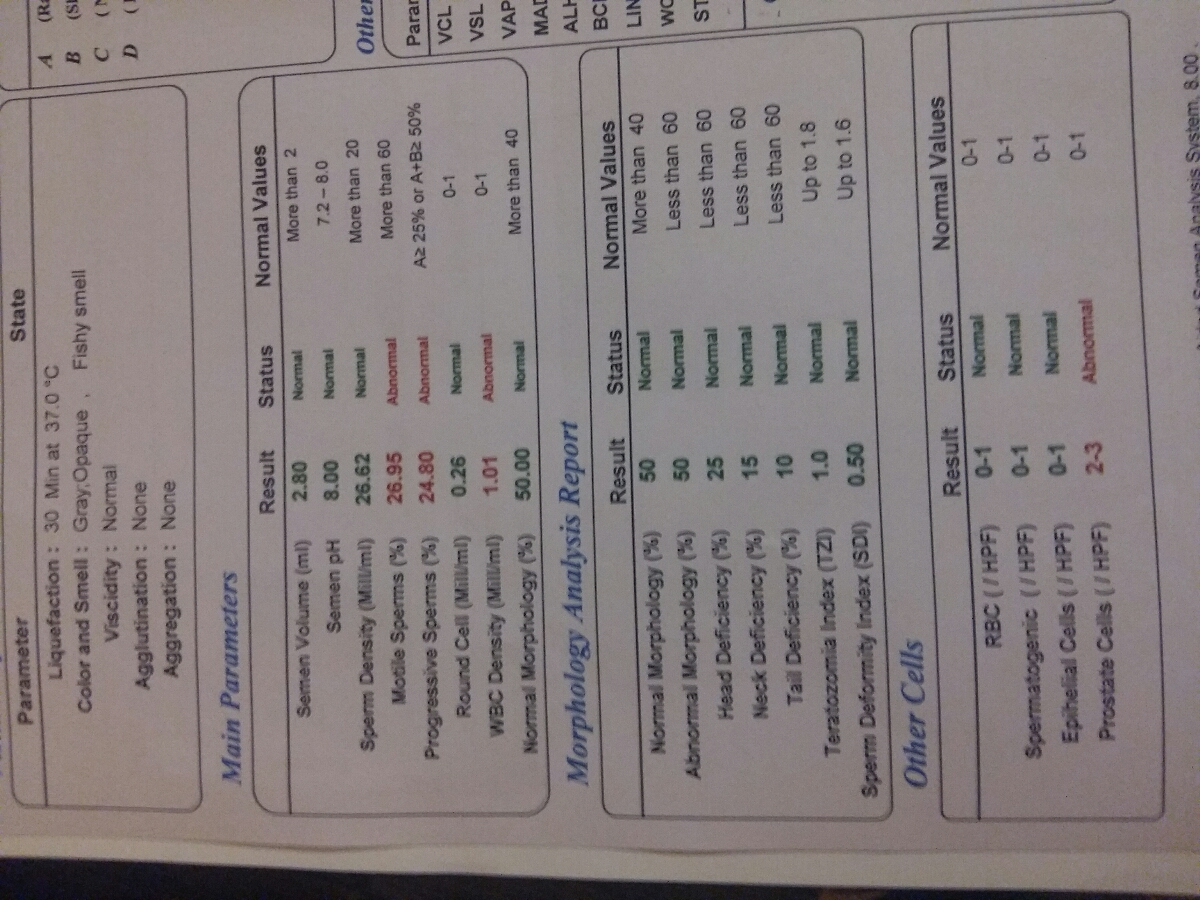 Parameter State
Liquefaction : 30 Min at 37.0 °C
Color and Smell : Gray,Opaque , Fishy smell
Viscidity : Normal
Agglutination : None
Aggregation : None
A
B
C
D
Main Parameters
Result Status Normal Values
Semen Volume (ml) 2.80 Normal More than 2
Semen pH 8.00 Normal 7.2 – 8.0
Sperm Density (Mill/ml) 26.62 Normal More than 20
Motile Sperms (%) 26.95 Abnormal More than 60
Progressive Sperms (%) 24.80 Abnormal A≥ 25% or A+B≥ 50%
Round Cell (Mill/ml) 0.26 Normal 0-1
WBC Density (Mill/ml) 1.01 Abnormal 0-1
Normal Morphology (%) 50.00 Normal More than 40
Other
Param
VCL
VSL
VAP
MAD
ALH
LIN
Morphology Analysis Report
Result Status Normal Values
Normal Morphology (%) 50 Normal More than 40
Abnormal Morphology (%) 50 Normal Less than 60
Head Deficiency (%) 25 Normal Less than 60
Neck Deficiency (%) 15 Normal Less than 60
Tail Deficiency (%) 10 Normal Less than 60
Teratozomia Index (TZI) 1.0 Normal Up to 1.8
Sperm Deformity Index (SDI) 0.50 Normal Up to 1.6
Other Cells
Result Status Normal Values
RBC ( / HPF) 0-1 Normal 0-1
Spermatogenic ( / HPF) 0-1 Normal 0-1
Epithelial Cells ( / HPF) 0-1 Normal 0-1
Prostate Cells ( / HPF) 2-3 Abnormal 0-1
Semen Analysis System, 8.00 .